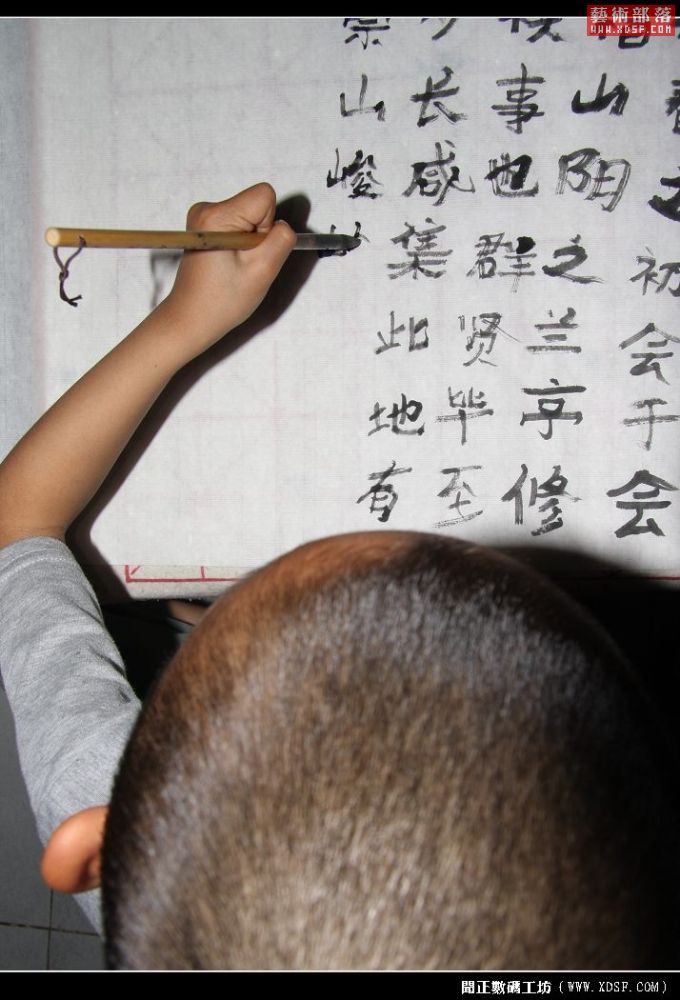 藝術部落
WWW.XDSF.COM
春之初会于会
稽山阴之兰亭修
禊事也群贤毕至
少长咸集此地有
崇山峻
聞正數碼工坊（WWW.XDSF.COM）